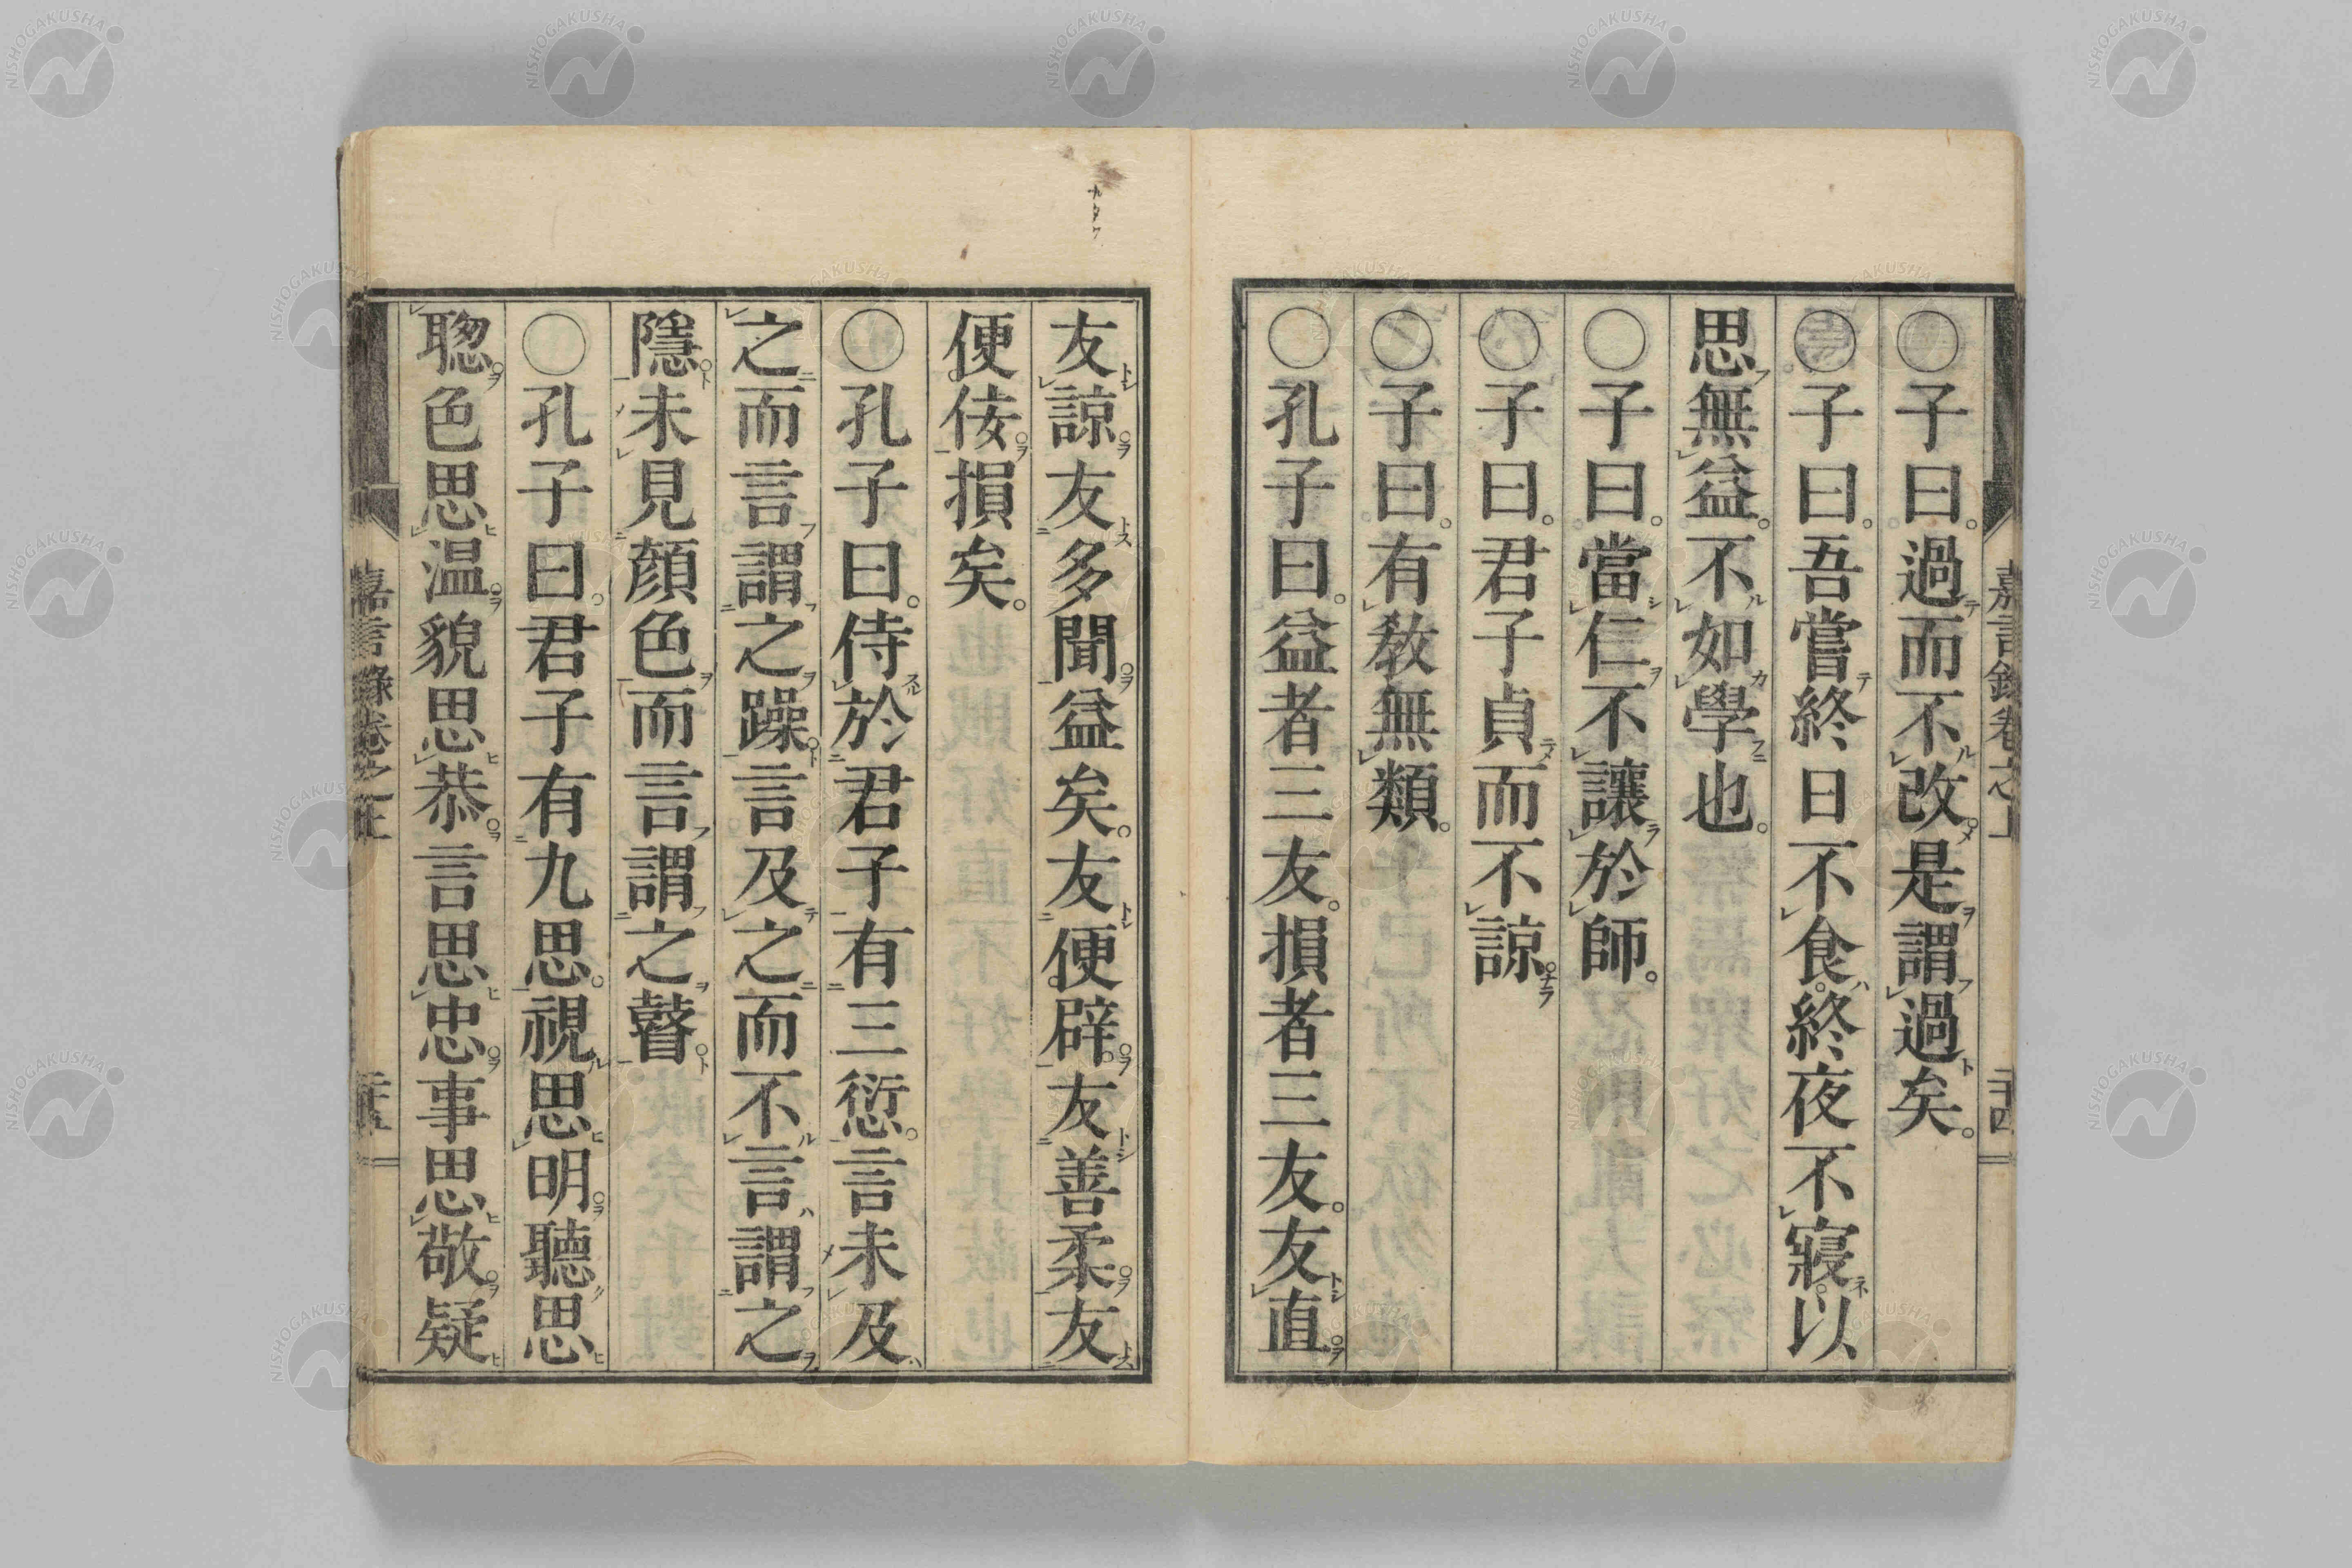 嘉言錄卷之上
二十四
○子曰。過而不改。是謂過矣。
○子曰。吾嘗終日不食。終夜不寢。以
思無益。不如學也。
○子曰。當仁不讓於師。
○子曰。君子貞而不諒。
○子曰。有敎無類。
○孔子曰。益者三友。損者三友。友直。
友諒。友多聞。益矣。友便辟。友善柔。友
便佞。損矣。
○孔子曰。侍於君子有三愆。言未及
之而言謂之躁。言及之而不言謂之
隱。未見顏色而言謂之瞽。
○孔子曰。君子有九思。視思明。聽思
聰。色思温。貌思恭。言思忠。事思敬。疑
嘉言錄卷之上
二十五
NISHOGAKUSHA